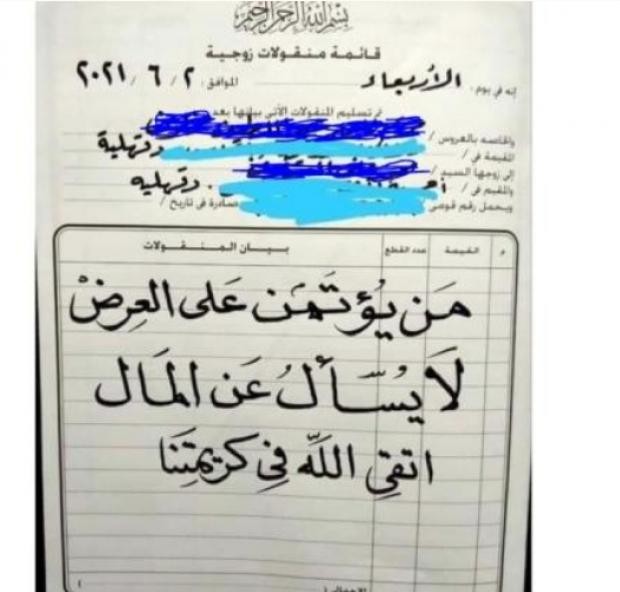 بسم الله الرحمن الرحيم
قائمة منقولات زوجية
إنه في يوم: الأربعاء الموافق: ٢ / ٦ / ٢٠٢١
تم تسليم المنقولات الآتي بيانها بعد
والخاصة بالعروس /
المقيمة في / دقهلية
إلى زوجها السيد /
والمقيم في / دقهليه
ويحمل رقم قومى صادرة في تاريخ /
م القيمة عدد القطع بيان المنقولات
مَن يُؤتَمَن عَلى العِرضْ
لَا يُسأَلُ عَن المَال
اتقِ اللَّه في كَريمتِنَا
الإجمالى (